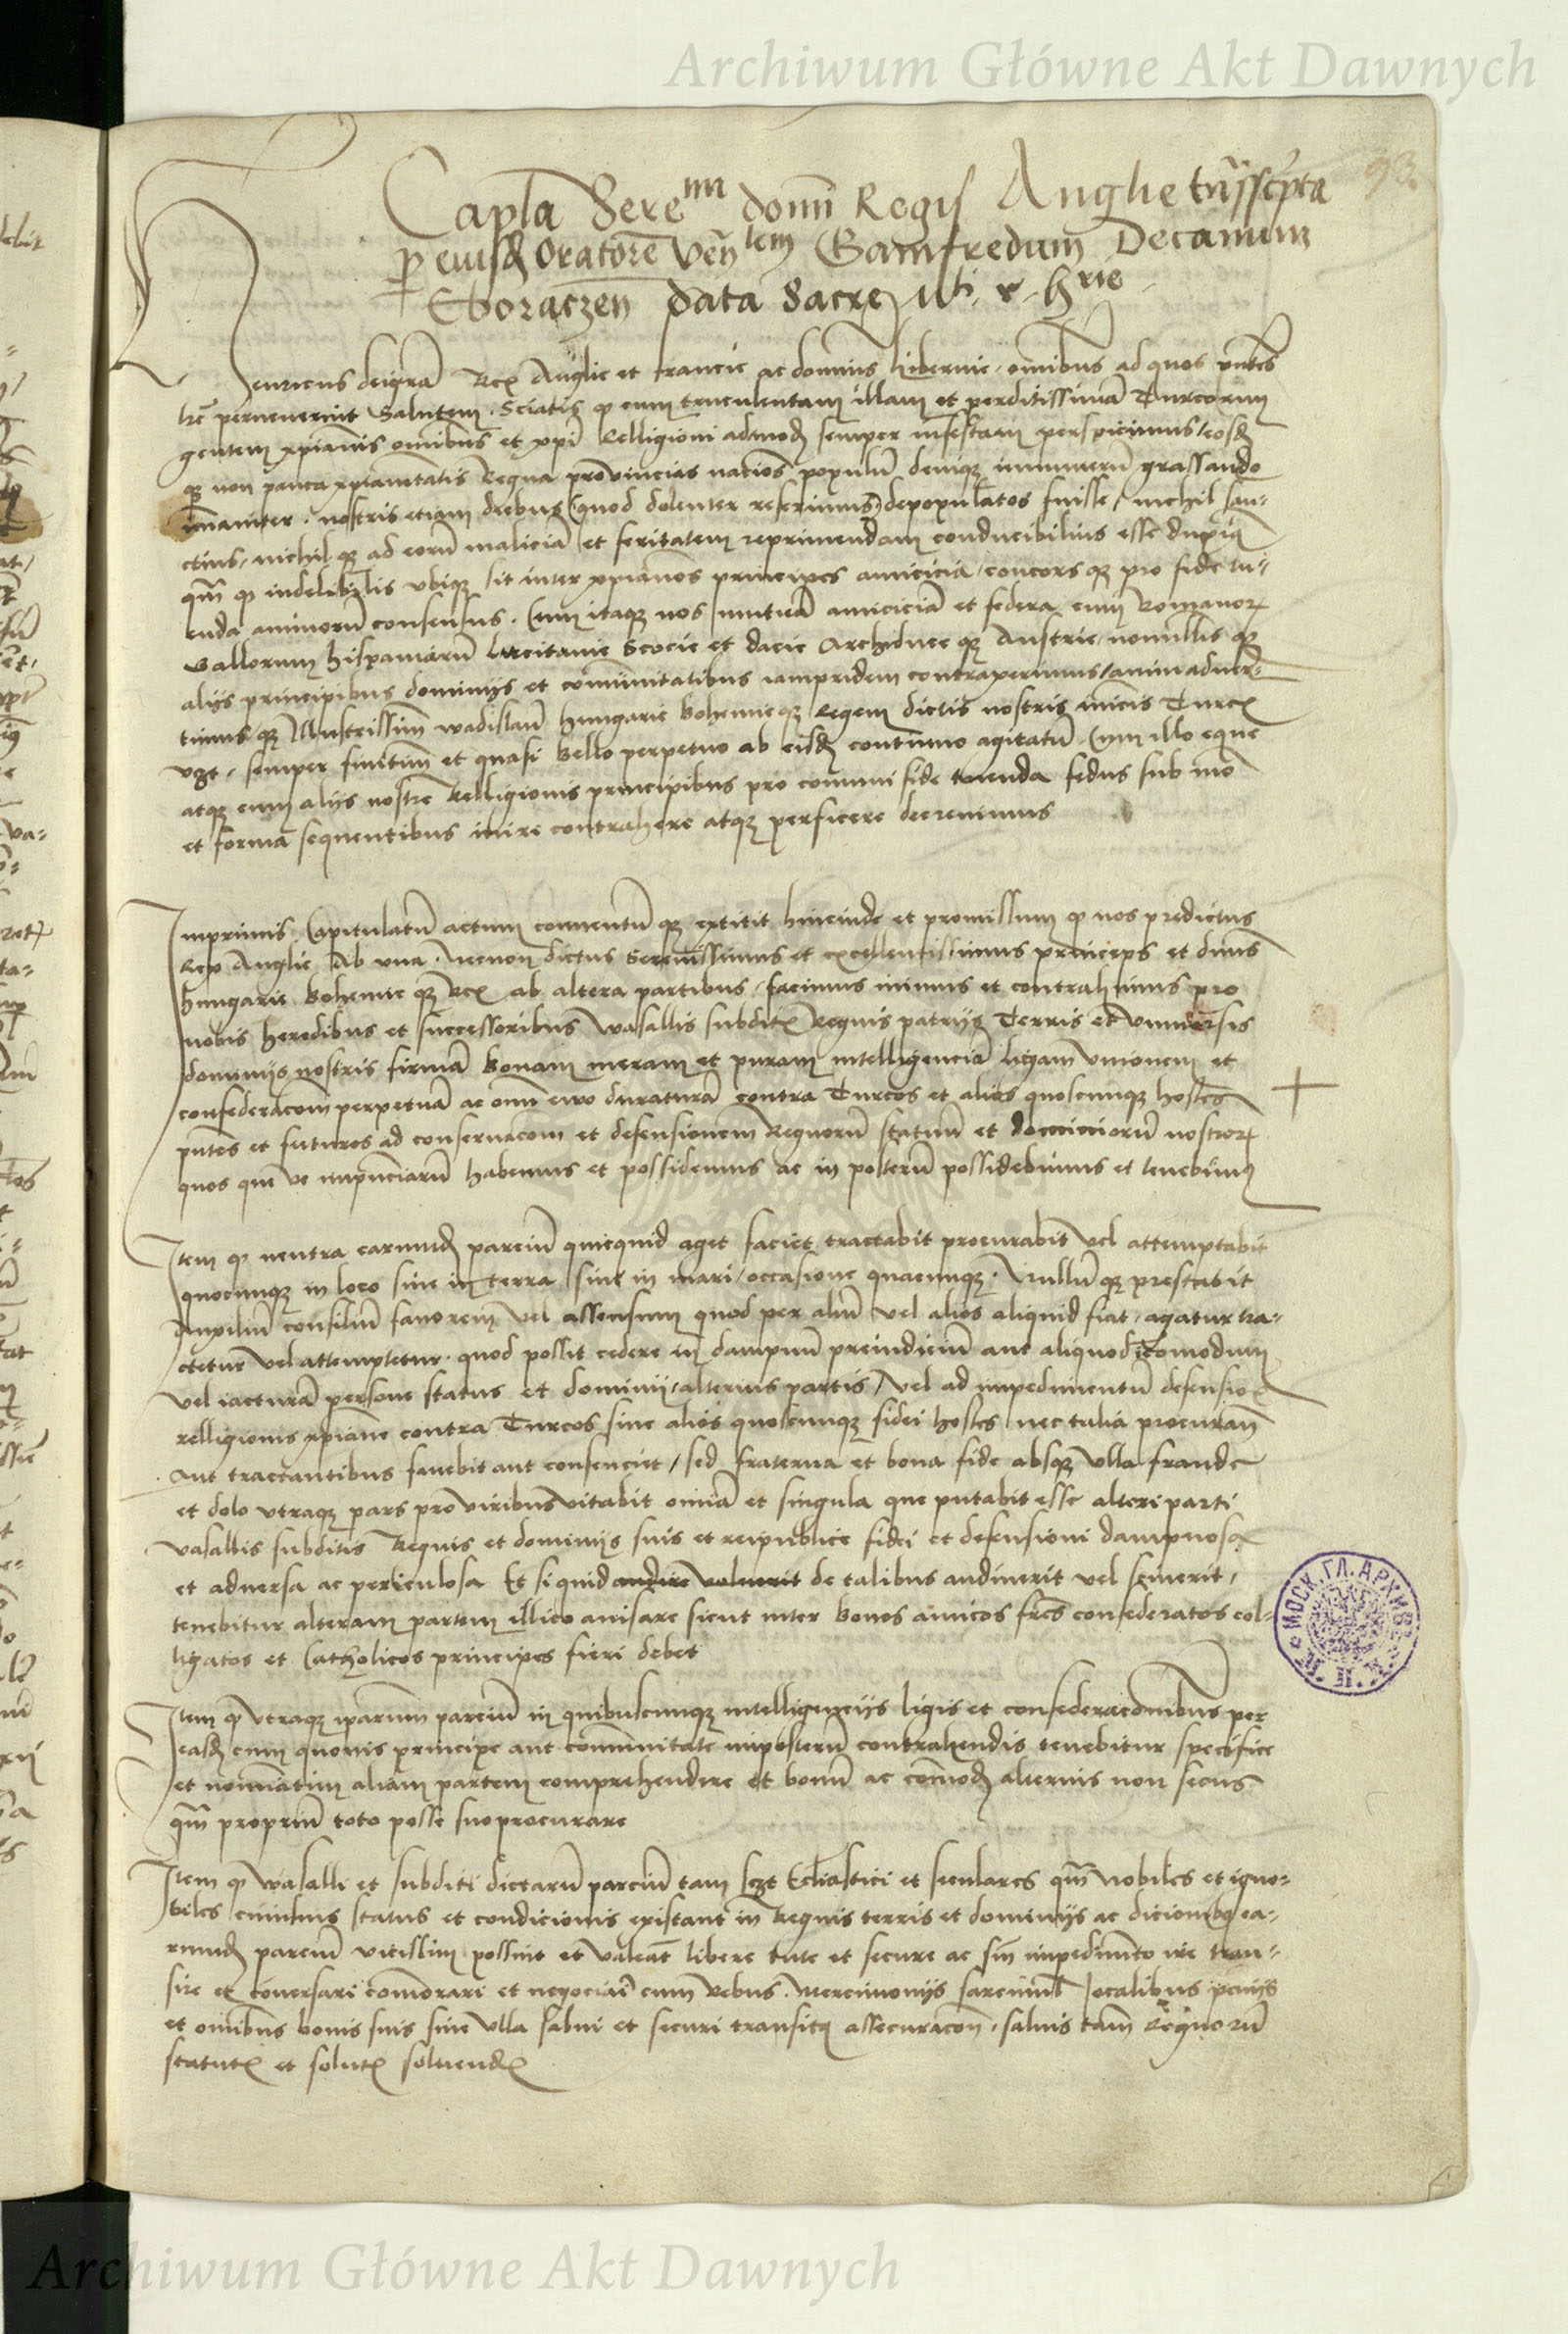 Archiwum Główne Akt Dawnych
93.
Capl̄a Sereᵐⁱ domī Regis Anglie trāsscripta
ꝑ eiusdꝫ Oratorē Ven̄ˡᵉᵐ Gamfredum Decanum
Eboraczen̄ data Sacre M̄ti. r. h̄rie
Henricus dei grā Rex Anglie et francie ac dominus hibernie. omnibus ad quos pn̄tes
lr̄e pervenerint Salutem. Sciatis ꝙ cum truculentam illam et perditissimā Turcorum
gentem xpianis omībus et xpi Relligioni admodꝫ semper infestam perspicimus, eosdꝫ
qꝫ non pauca xpianitatis Regna provincias nacio͞es populū deniqꝫ innumerū grassando
imaniter. nostris etiam diebus (quod dolenter referimus) depopulatos fuisse, nichil san-
ctius, nichil qꝫ ad eorū maliciā et feritatem reprimendam conducibilius esse
qm̄ ꝙ indelibilis ubiqꝫ sit inter xpianos principes amicicia, concors qꝫ pro fide tu-
enda animorū consensus. Cum itaqꝫ nos mutuā amiciciā et federa cum Romanorꝫ
Gallorum hispaniarū Lucitanie Scocie et dacie Archiduce qꝫ Austrie, nonnullis qꝫ
alijs principibus dominijs et comūnitatibus iampridem contraxerimus, animadver-
timus qꝫ Illustrissim̄ wadislaū hungarie bohemieqꝫ Regem dictis nostris inimicis Turcꝫ
vꝫt, semper finitimū et quasi bello perpetuo ab eisdꝫ continuo agitatū. Cum illo eque
atqꝫ cum alijs nostre Relligionis principibus pro comuni fide tuenda fedus sub mō
et forma sequentibus inire contrahere atqꝫ perficere decrevimus
Inprimis Capitulatū actum conventū qꝫ extitit hincinde et promissum ꝙ nos predictus
Rex Anglie Ab una. Necnon dictus Serenissimus et excellentissimus princeps et dn̄us
hungarie bohemie qꝫ Rex ab altera partibus, facimus inimus et contrahimus pro
nobis heredibus et successoribus wasallis subditꝫ Regnis patrijs Terris et universis
dominijs nostris firmā bonam meram et puram intelligenciā ligam Unionem et
confederacōm perpetuā ac om̄i evo duraturā contra Turcos et alios quoscunqꝫ hostes
pn̄tes et futuros ad conservacōm et defensionem Regnorū statuū et dominiorū nostrorꝫ
quos que ut habemus et possidemus ac in posterū possidebimus et tenebimꝰ
Item ꝙ neutra earundꝫ parciū quicquid aget faciet tractabit procurabit vel attemptabit
quocunqꝫ in loco sive in terra sive in mari, occasione quacunqꝫ. Nullū qꝫ prestabit
Auxiliū consiliū favorem vel assensum quod per aliū vel alios aliquid fiat, agatur tra-
ctetur vel attemptetur. quod possit cedere in dampnū preiudiciū aut aliquod incomodum
vel iacturā persone status et dominij, alterius partis, vel ad impedimentū defensioꝫ
relligionis xpiane contra Turcos sive alios quoscunqꝫ fidei hostes nec talia procuran̄
Aut tractantibus favebit aut consenciet, sed fraterna et bona fide absqꝫ ulla fraude
et dolo utraqꝫ pars pro viribus vitabit omīa et singula que putabit esse alteri parti
vasallis subditis Regnis et dominijs suis et reipublice fidei et defensioni dampnosa
et adversa ac periculosa Et siquid audire voluerit de talibus audiverit vel sciverit,
tenebitur alteram partem illico avisare sicut inter bonos amicos fr̄es confederatos col-
ligatos et Catholicos principes fieri debet
Item ꝙ utraqꝫ iparum parciū in quibuscunqꝫ intelligencijs ligis et confederacōnibus per
easdꝫ cum quovis principe aut comūnitate inposterū contrahendis tenebitur specifice
et nominatim aliam partem comprehendere et bonū ac comodꝫ alterius non secus
qm̄ propriū toto posse suo procurare
Item ꝙ wasalli et subditi dictarū parciū tam sczt Eccliastici et seculares qm̄ nobiles et igno-
biles cuiusvis status et condicionis existant in Regnis terris et dominijs ac dicionibꝫ ea-
rundꝫ parciū vicissim possint et valeāt libere tute et secure ac sine impedimento ire tran-
sire et conversari comorari et negociari cum rebus. Mercimonijs sarcinul Jocalibus pecunijs
et omībus bonis suis sine ulla salvi et securi transitꝫ assecuracōn. salvis tam̄ Regnorū
statutꝫ et solutꝫ solvendꝫ
МОСК. ГЛ. АРХИВЪ
Archiwum Główne Akt Dawnych